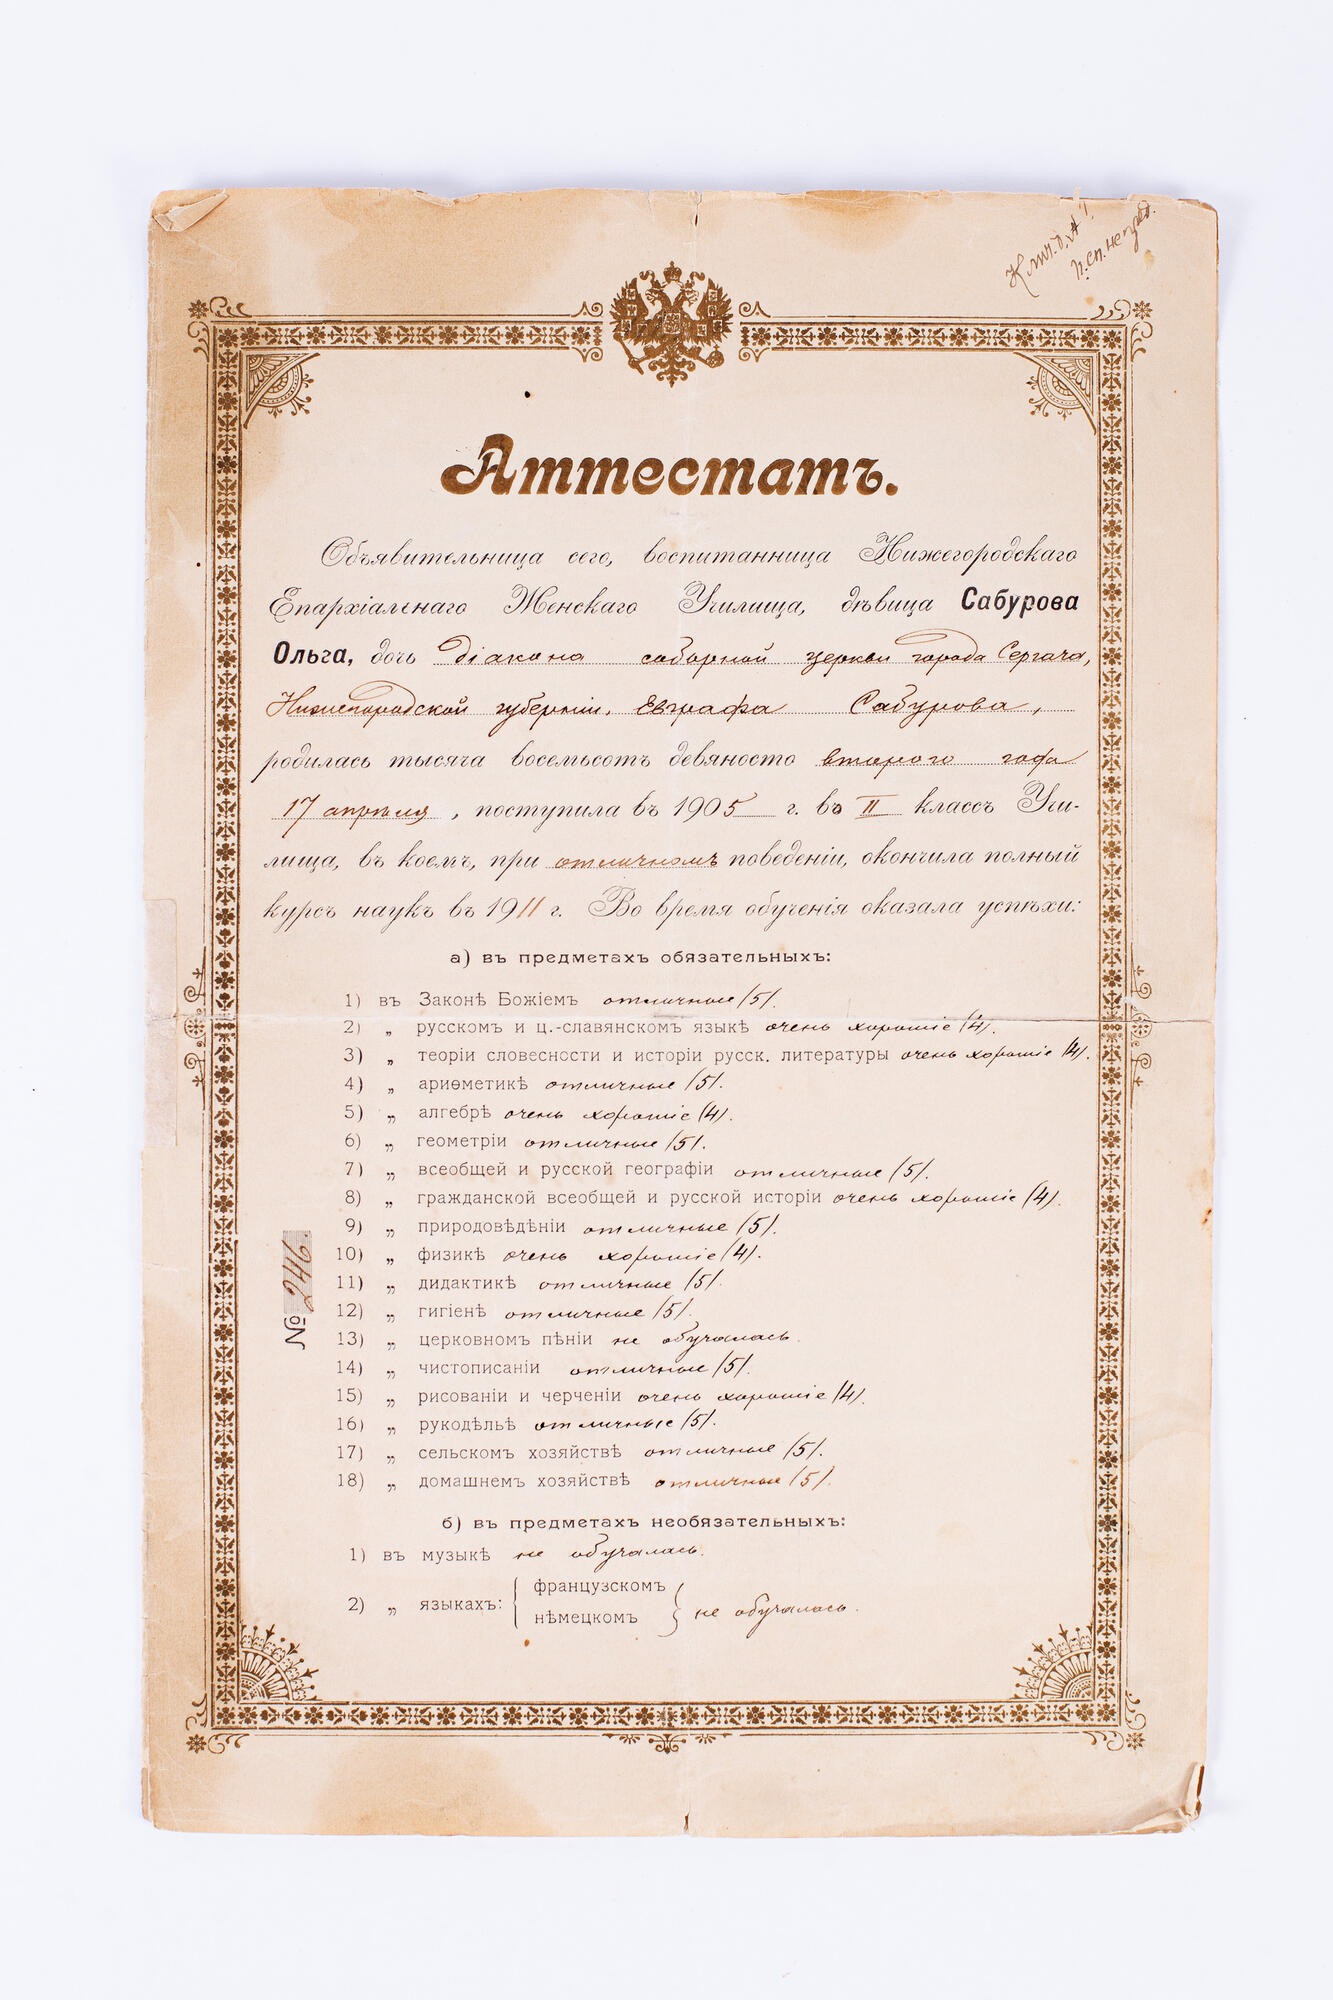 Аттестатъ.
Объявительница сего, воспитанница Нижегородскаго
Епархіальнаго Женскаго Училища, дѣвица Сабурова
Ольга, дочь діакона соборной церкви города Сергача,
Нижегородской губерніи, Евграфа Сабурова,
родилась тысяча восемьсотъ девяносто второго года
17 апрѣля, поступила въ 1905 г. въ II классъ Учи-
лища, въ коемъ, при отличномъ поведеніи, окончила полный
курсъ наукъ въ 1911 г. Во время обученія оказала успѣхи:
а) въ предметахъ обязательныхъ:
1) въ Законѣ Божіемъ отличные (5).
2) „ русскомъ и ц.-славянскомъ языкѣ очень хорошіе (4).
3) „ теоріи словесности и исторіи русск. литературы очень хорошіе (4).
4) „ ариѳметикѣ отличные (5).
5) „ алгебрѣ очень хорошіе (4).
6) „ геометріи отличные (5).
7) „ всеобщей и русской географіи отличные (5).
8) „ гражданской всеобщей и русской исторіи очень хорошіе (4).
9) „ природовѣдѣніи отличные (5).
10) „ физикѣ очень хорошіе (4).
11) „ дидактикѣ отличные (5).
12) „ гигіенѣ отличные (5).
13) „ церковномъ пѣніи не обучалась.
14) „ чистописаніи отличные (5).
15) „ рисованіи и черченіи очень хорошіе (4).
16) „ рукодѣльѣ отличные (5).
17) „ сельскомъ хозяйствѣ отличные (5).
18) „ домашнемъ хозяйствѣ отличные (5).
№ 246.
б) въ предметахъ необязательныхъ:
1) въ музыкѣ не обучалась.
2) „ языкахъ: { французскомъ
нѣмецкомъ } не обучалась.